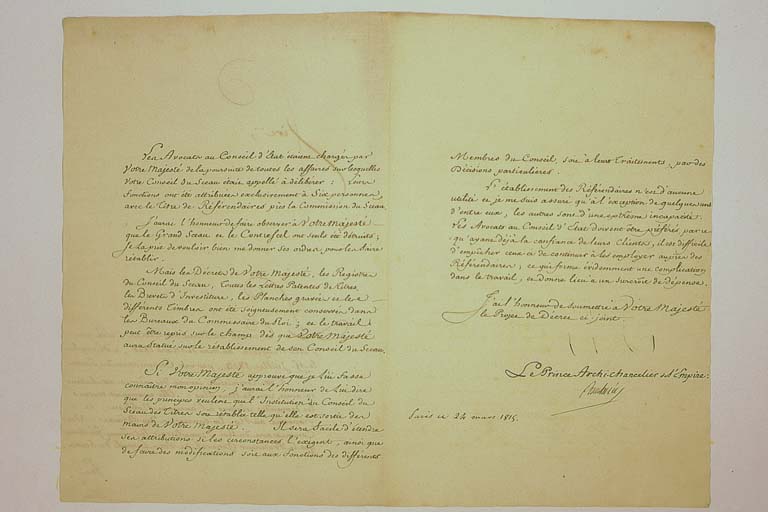 Les Avocats au Conseil d'Etat étaient chargés par
Votre Majesté de la poursuite de toutes les affaires sur lesquelles
Votre Conseil du Sceau était appellé à délibérer : Leurs
fonctions ont été attribuées exclusivement à Six personnes
avec le Titre de Référendaires près la Commission du Sceau.
J'aurai l'honneur de faire observer à Votre Majesté
que le Grand Sceau et le Contrescel ont seuls été détruits;
Je la prie de vouloir bien me donner ses ordres pour les faire
rétablir.
Mais les Décrets de Votre Majesté, les Registres
du Conseil du Sceau, toutes les Lettres Patentes de Titres,
les Brevets d'Investiture, les Planches gravées et les
différents Timbres ont été soigneusement conservés dans
les Bureaux du Commissaire du Roi; et le travail
peut être repris sur le champ dès que Votre Majesté
aura Statué sur le rétablissement de son Conseil du Sceau.
Si Votre Majesté approuve que je Lui fasse
connaître mon opinion, j'aurai l'honneur de Lui dire
que les principes veulent que l'Institution du Conseil du
Sceau des Titres soit rétablie telle qu'elle est sortie des
mains de Votre Majesté. Il sera facile d'étendre
ses attributions si les circonstances l'exigent, ainsi que
de faire des modifications soit aux fonctions des différents
Membres du Conseil, soit à leurs Traitements, par des
Décisions particulières.
L'établissement des Référendaires n'est d'aucune
utilité et je me suis assuré qu'à l'exception de quelques uns
d'entre eux, les autres sont d'une extrême incapacité.
Les Avocats au Conseil d'Etat doivent être préférés, parce
qu'ayant déjà la confiance de leurs Clients, il est difficile
d'empêcher ceux-ci de continuer à les employer auprès des
Référendaires, ce qui forme évidemment une complication
dans le travail, et donne lieu à un surcroît de dépense.
J'ai l'honneur de soumettre à Votre Majesté
le Projet de Décret ci joint.
Le Prince Archi-chancelier de l'Empire.
Paris ce 24 mars 1815.